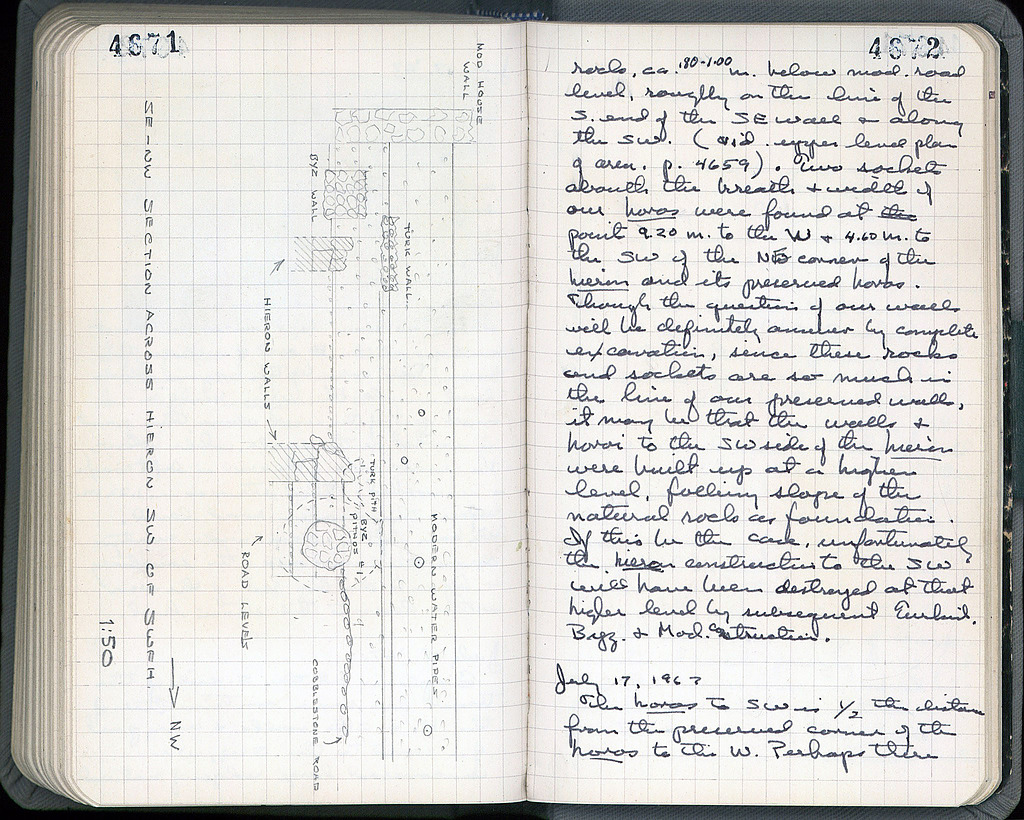 4671
MOD HOUSE
WALL
BYZ WALL
TURK WALL.
HIERON WALLS
TURK PITH
BYZ
PITHOS #1
MODERN WATER PIPES
ROAD LEVELS
COBBLESTONE ROAD
SE-NW SECTION ACROSS HIERON SW. OF SWFH.
1:50
NW
4672
rocks, ca. .80-1.00 m. below mod. road
level, roughly on the line of the
S. end of the SE wall & along
the SW. (vid. upper level plan
of area. p. 4659). Two sockets
about the breath & width of
our horos were found at the
point 9.20 m. to the W & 4.60 m. to
the SW of the NE corner of the
hieron and its preserved horos.
Though the question of our walls
will be definitely answer by complete
excavation, since these rocks
and sockets are so much in
the line of our preserved walls,
it may be that the walls &
horoi to the SW side of the hieron
were built up at a higher
level, following slope of the
natural rock as foundation.
If this be the case, unfortunately
the hieron construction to the SW
will have been destroyed at that
higher level by subsequent
Byz. & Mod. construction.
July 17, 1967
The horos to SW is 1/2 the distance
from the preserved corner of the
horos to the W. Perhaps there